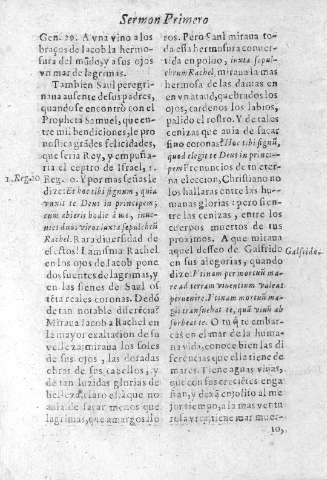 Sermon Primero
Gen. 29. A vna vino a los
braços de Iacob la hermo-
sura del mũdo, y a sus ojos
vn mar de lagrimas.
Tambien Saul peregri-
naua ausente de sus padres,
quando se encontrò con el
Propheta Samuel, que en-
tre mil bendiciones, le pro
nosticaua grãdes felicidades,
que seria Rey, y empuña-
ria el ceptro de Israel, 1.
1. Reg. 10
Reg. 10. Y por mas señas le
dize: Et hoc tibi signum, quia
vnxit te Deus in principem;
cum abieris hodie à me, inue-
nies duos viros iuxta sepulchrũ
Rachel. Rara diuersidad de
efectos! La misma Rachel
en los ojos de Iacob pone
dos fuentes de lagrimas, y
en las sienes de Saul os
tẽta reales coronas. De dõ
de tan notable diferẽcia?
Miraua Iacob a Rachel en
la mayor exaltacion de su
velleza; miraua los soles
de sus ojos, las doradas
obras de sus cabellos, y
de tan luzidas glorias de
belleza, claro està que no
auia de sacar menos que
lagrimas, que amargos llo
ros. Pero Saul miraua to-
da essa hermosura conuer-
tida en poluo, iuxta sepul-
chrum Rachel, miraua la mas
hermosa de las damas en
en vn ataud, quebrados los
ojos, cardenos los labios,
palido el rostro. Y de tales
cenizas que auia de sacar
sino coronas? Hoc tibi signũ,
quod elegit te Deus in princi-
pem? Prenuncios de tu eter-
na eleccion, Christiano no
los hallaras entre las hu-
manas glorias: pero si en-
tre las cenizas, entre los
cuerpos muertos de tus
proximos. A que miraua
aquel desseo de Galfrido
Galfrido.
en sus alegorias, quando
dize: Vtinam per mortuũ ma-
re ad terram viuentium valeat
peruenire. Vtinam mortuũ ma-
gis transuehat te, quã viuũ ab
sorbeat te. O tu q̃ te embar-
cas en el mar de la huma-
na vida, conoce bien las di
ferencias que ella tiene de
mares. Tiene aguas viuas,
que con sus crecientes enga
ñan, y dexã en
jor tiempo, a la mas ven tu
rosa vida, tiene mar muer-
to,